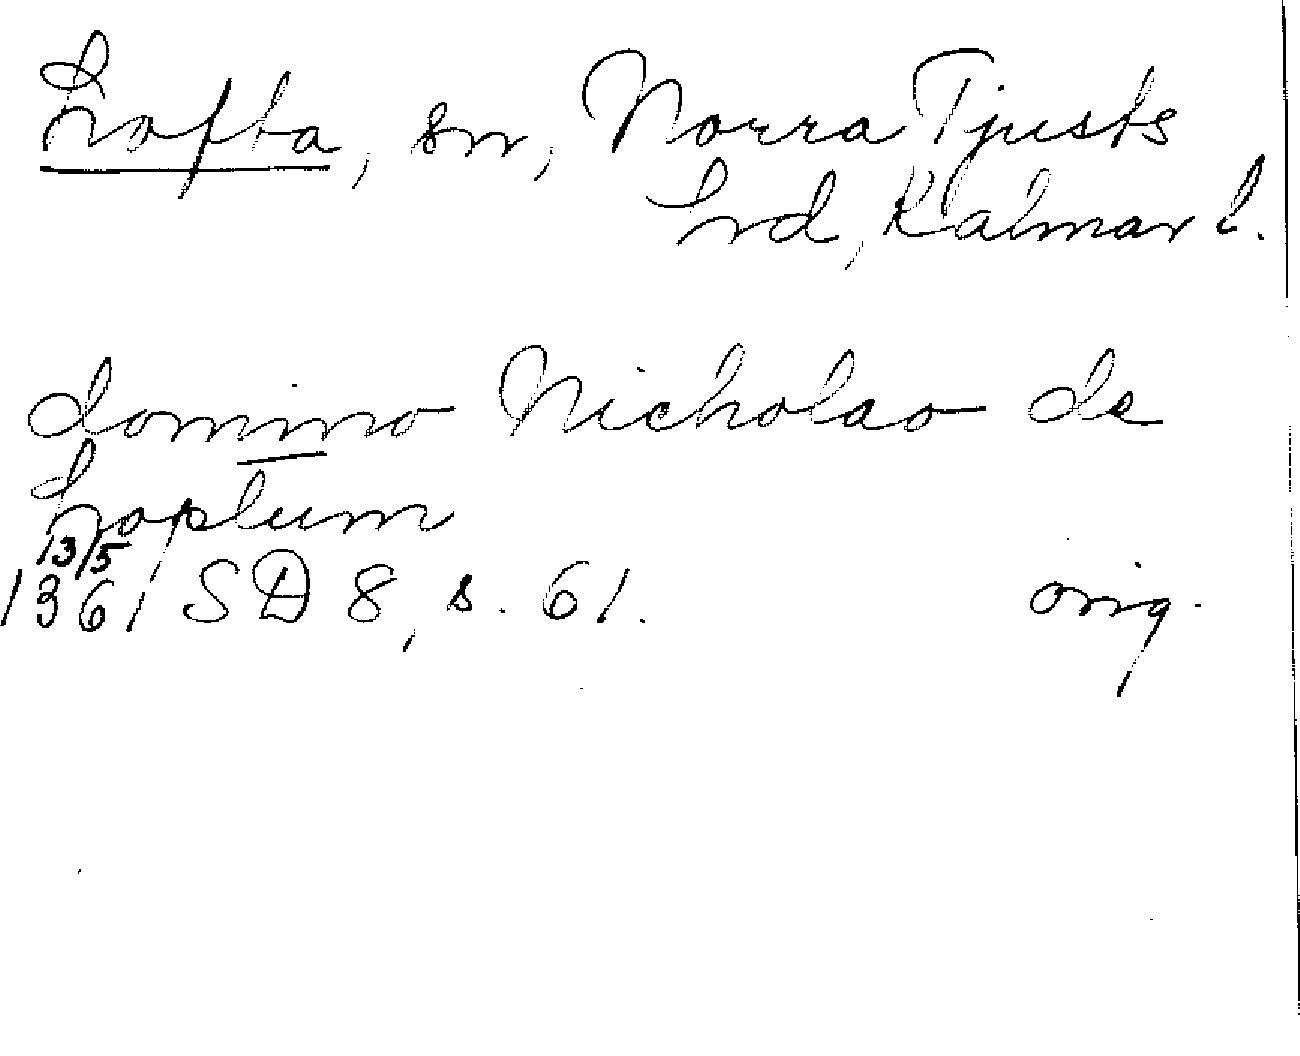 Lofta, sn, Norra Tjusts
hrd, Kalmar l.
domino Nicholao de
Loptum
13/5
1361 SD 8, s. 61. orig.